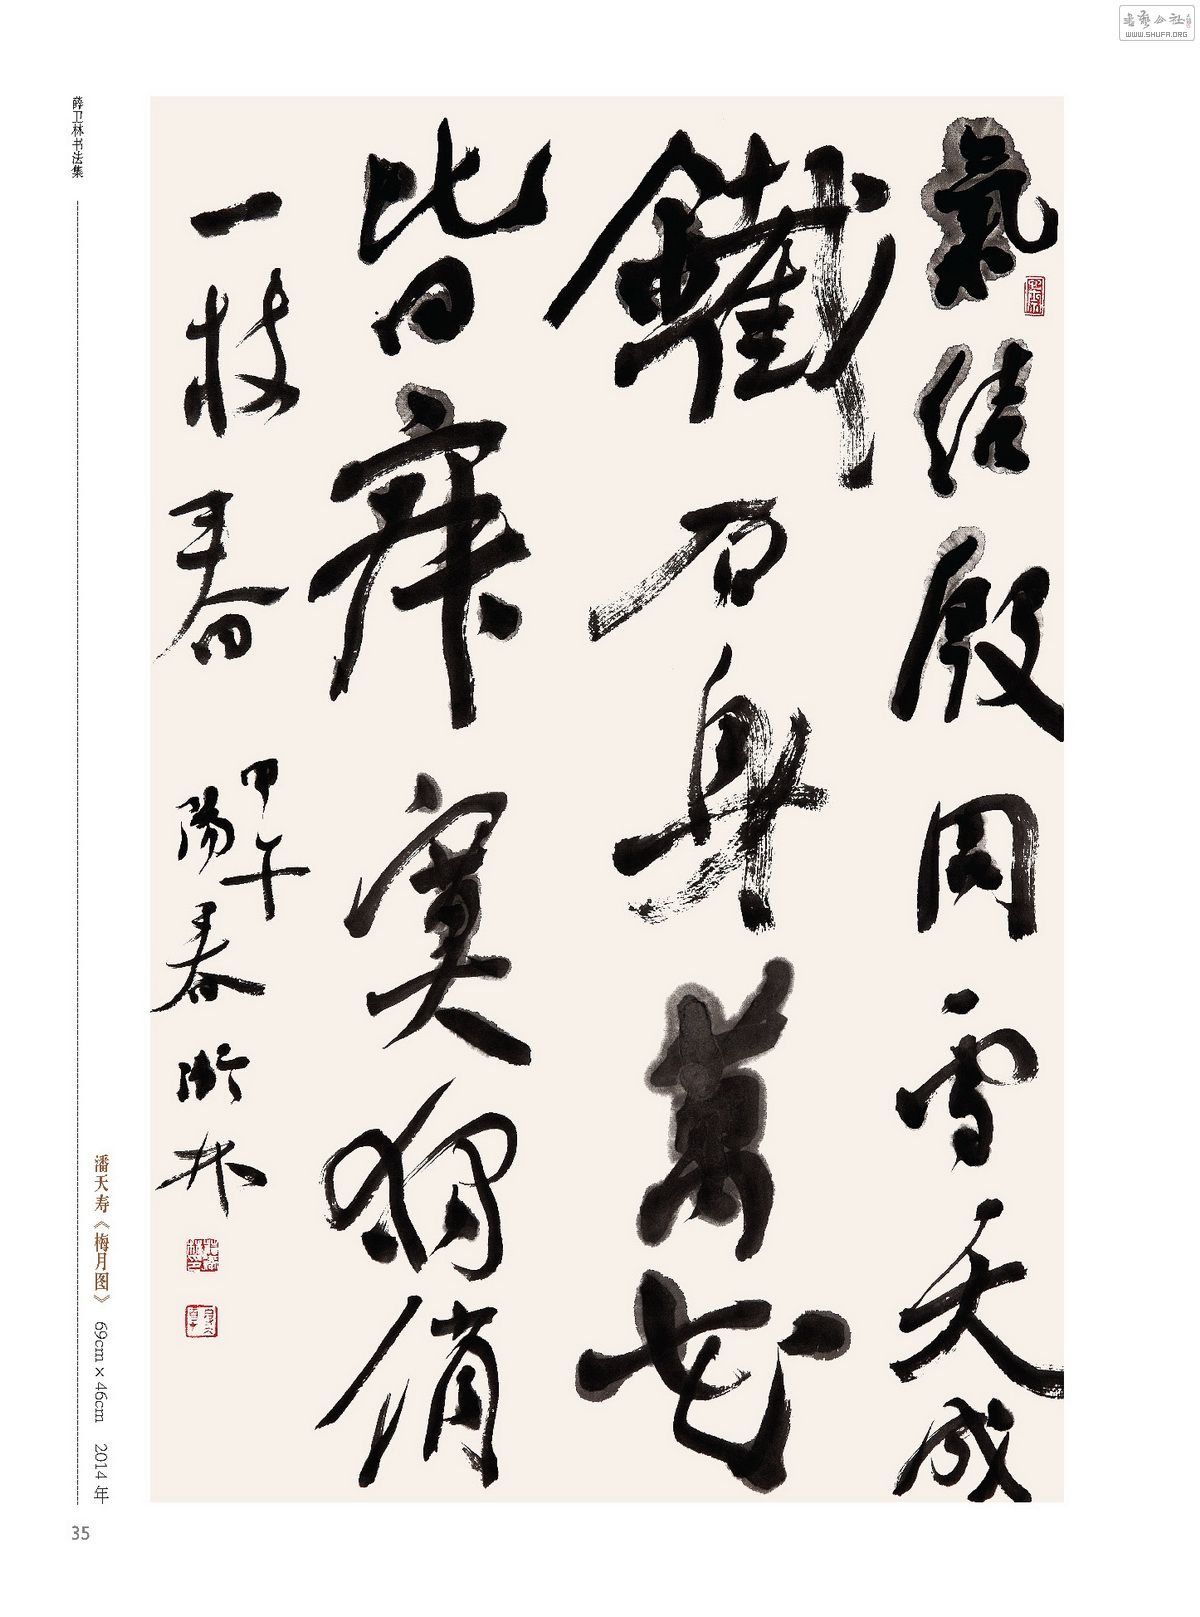 氣結殷周雪天成
鐵石身萬花
皆寂寞獨俏
一枝春
甲午
陽春衛林
薛卫林书法集
潘天寿《梅月图》 69cm×46cm 2014年
35
书艺公社
WWW.SHUFA.ORG